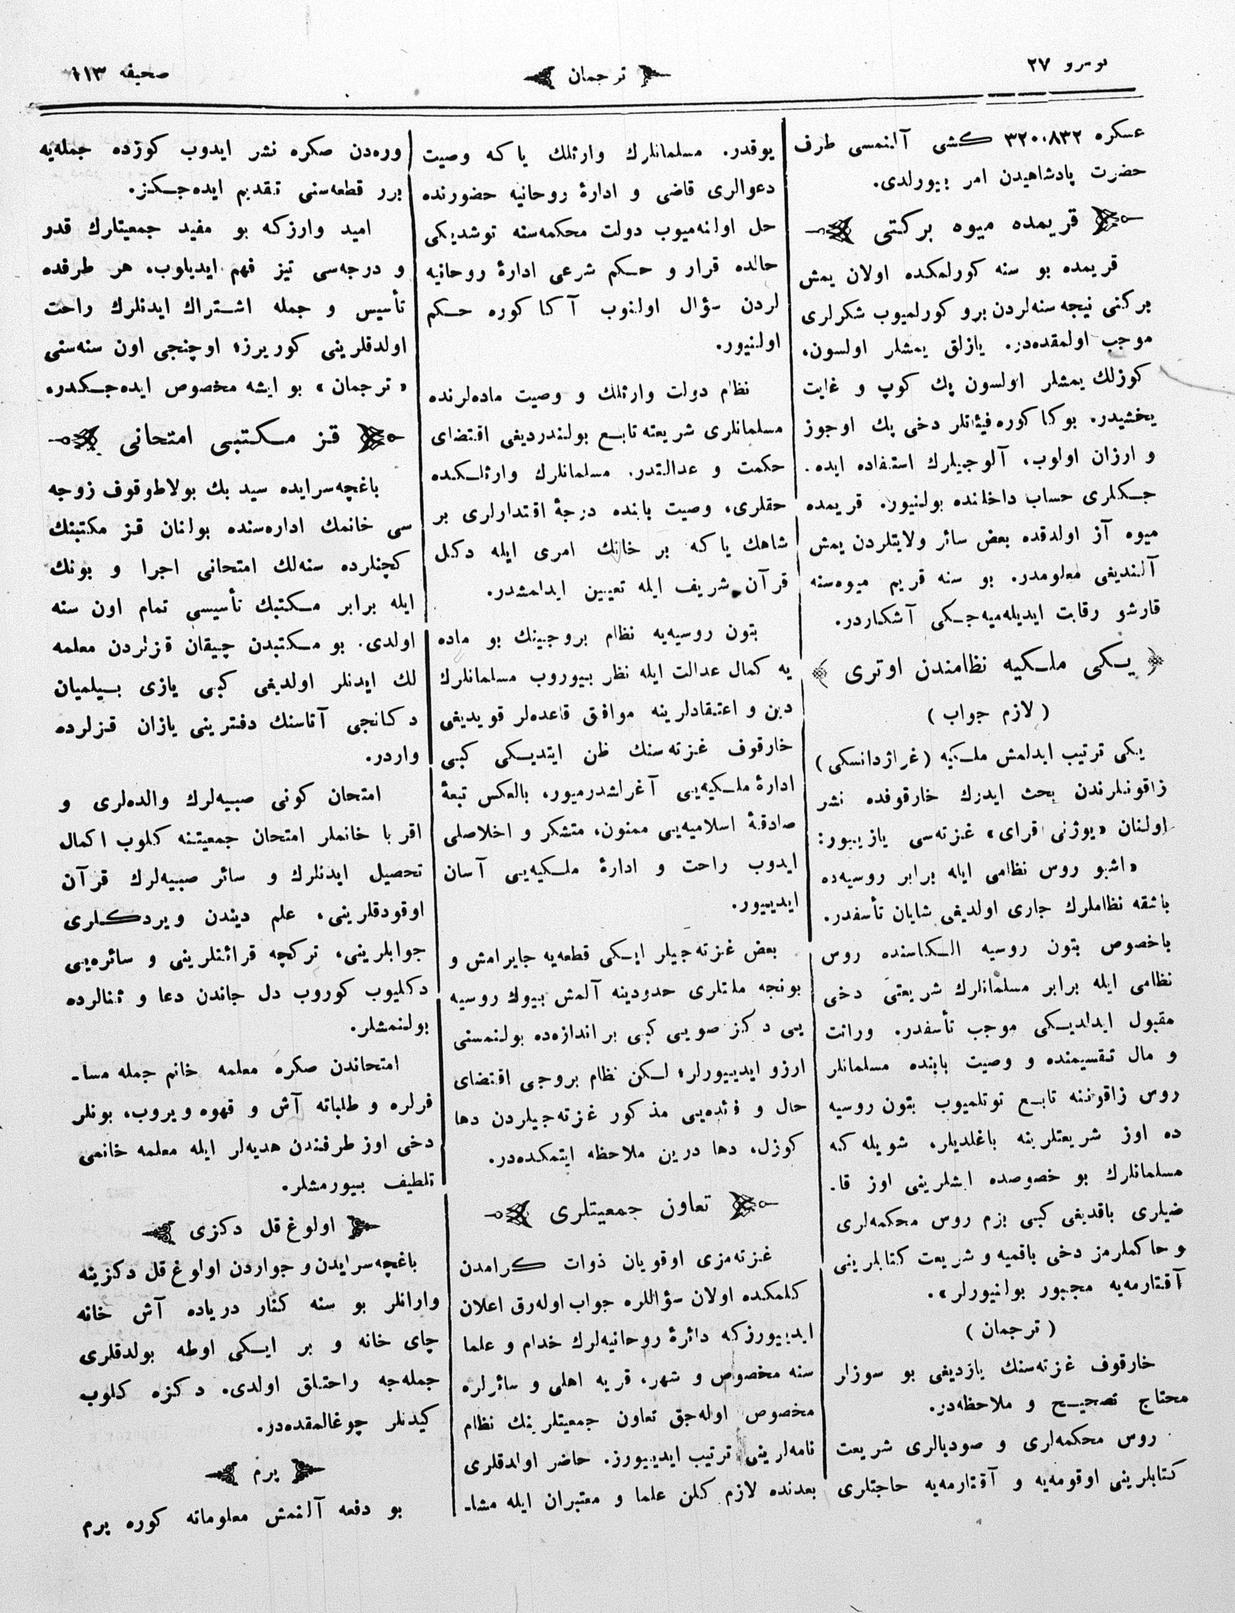 نومرو ٢٧
ترجمان
صحيفه ١١٣
عسكره ٣٢٠،٨٣٢ كشى آلنمسى طرف
حضرت پادشاهيدن امر بيورلدى.
قريمده ميوه بركتى
قريمده بو سنه كورلمكده اولان يمش
بركتى نيجه سنه‌لردن برو كورلميوب شكرلرى
موجب اولمقده‌در. يازلق يمشلر اولسون،
كوزلك يمشلر اولسون پك كوپ و غايت
يخشيدر. بوكا كوره فيئاتلر دخى پك اوجوز
و ارزان اولوب، آلوجيلرك استفاده ايده‌
جكلرى حساب داخلنده بولنيور. قريمده
ميوه آز اولدقده بعض سائر ولايتلردن يمش
آلنديغى معلومدر. بو سنه قريم ميوه‌سنه
قارشو رقابت ايديله‌ميه‌جكى آشكاردر.
يكى ملكيه نظامندن اوترى
( لازم جواب )
يكى ترتيب ايدلمش ملكيه (غراژدانسكى)
زاقونلرندن بحث ايدرك خارقوفده نشر
اولنان «يوژنى قراى» غزته‌سى يازييور:
«اشبو روس نظامى ايله برابر روسيه‌ده
باشقه نظاملرك جارى اولديغى شايان تأسفدر.
باخصوص بتون روسيه الكاسنده روس
نظامى ايله برابر مسلمانلرك شريعتى دخى
مقبول ايدلديكى موجب تأسفدر. وراثت
و مال تقسيمنده و وصيت بابنده مسلمانلر
روس زاقوننه تابع توتلميوب بتون روسيه
ده اوز شريعتلرينه باغلديلر، شويله كه
مسلمانلرك بو خصوصده ايشلرينى اوز قا-
ضيلرى باقديغى كبى بزم روس محكمه‌لرى
و حاكملرمز دخى باقميه و شريعت كتابلرينى
آقتارمه‌يه مجبور بولنيورلر».
( ترجمان )
خارقوف غزته‌سنك يازديغى بو سوزلر
محتاج تصحيح و ملاحظه‌در.
روس محكمه‌لرى و صوديالرى شريعت
كتابلرينى اوقومه‌يه و آقتارمه‌يه حاجتلرى
يوقدر. مسلمانلرك وارثلك ياكه وصيت
دعوالرى قاضى و ادارهٔ روحانيه حضورنده
حل اولنه‌ميوب دولت محكمه‌سنه توشديكى
حالده قرار و حكم شرعى ادارهٔ روحانيه
لردن سؤال اولنوب آكا كوره حكم
اولنيور.
نظام دولت وارثلك و وصيت ماده‌لرنده
مسلمانلرى شريعته تابع بولندرديغى اقتضاى
حكمت و عدالتدر. مسلمانلرك وارثلكده
حقلرى، وصيت بابنده درجهٔ اقتدارلرى بر
شاهك ياكه بر خانك امرى ايله دكل
قرآن شريف ايله تعيين ايدلمشدر.
بتون روسيه‌يه نظام بروجيينك بو ماده
يه كمال عدالت ايله نظر بيوروب مسلمانلرك
دين و اعتقادلرينه موافق قاعده‌لر قويديغى
خارقوف غزته‌سنك ظن ايتديكى كبى
ادارهٔ ملكيه‌يى آغراشدرميور، بالعكس تبعهٔ
صادقهٔ اسلاميه‌يى ممنون، متشكر و اخلاصلى
ايدوب راحت و ادارهٔ ملكيه‌يى آسان
ايدييور.
بعض غزته‌جيلر ايكى قطعه‌يه جايرامش و
بونجه ملتلرى حدودينه آلمش بيوك روسيه
يى دكز صويى كبى بر اندازه‌ده بولنمسنى
ارزو ايدييورلر؛ لكن نظام بروجى اقتضاى
حال و فائده‌يى مذكور غزته‌جيلردن دها
كوزل، دها درين ملاحظه ايتمكده‌در.
تعاون جمعيتلرى
غزته‌مزى اوقويان ذوات كرامدن
كلمكده اولان سؤاللره جواب اوله‌رق اعلان
ايدييورزكه دائرهٔ روحانيه‌لرك خدام و علما
سنه مخصوص و شهر، قريه اهلى و سائرلره
مخصوص اوله‌جق تعاون جمعيتلرينك نظام
نامه‌لرينى ترتيب ايدييورز. حاضر اولدقلرى
بعدنده لازم كلن علما و معتبران ايله مشا-
وره‌دن صكره نشر ايدوب كوزده جمله‌يه
برر قطعه‌سنى تقديم ايده‌جكز.
اميد وارزكه بو مفيد جمعيتلرك قدو
و درجه‌سى تيز فهم ايديلوب، هر طرفده
تأسيس و جمله اشتراك ايدنلرك راحت
اولدقلرينى كوريرز؛ اوچنجى اون سنه‌سنى
«ترجمان» بو ايشه مخصوص ايده‌جكدر.
قز مكتبى امتحانى
باغچه‌سرايده سيد بك بولاطوقوف زوجه
سى خانمك اداره‌سنده بولنان قز مكتبنك
كچنلرده سنه‌لك امتحانى اجرا و بونك
ايله برابر مكتبك تأسيسى تمام اون سنه
اولدى. بو مكتبدن چيقان قزلردن معلمه
لك ايدنلر اولديغى كبى يازى بيلميان
دكانجى آتاسنك دفترينى يازان قزلرده
واردر.
امتحان كونى صبيه‌لرك والده‌لرى و
اقربا خانملر امتحان جمعيتنه كلوب اكمال
تحصيل ايدنلرك و سائر صبيه‌لرك قرآن
اوقودقلرينى، علم ديندن ويردكلرى
جوابلرينى، تركچه قرائتلرينى و سائره‌يى
دكليوب كوروب دل جاندن دعا و ثنالرده
بولنمشلر.
امتحاندن صكره معلمه خانم جمله مسا-
فرلره و طلباته آش و قهوه ويروب، بونلر
دخى اوز طرفندن هديه‌لر ايله معلمه خانمى
تلطيف بيورمشلر.
اولوغ قل دكزى
باغچه‌سرايدن و جواردن اولوغ قل دكزينه
وارانلر بو سنه كنار درياده آش خانه
چاى خانه و بر ايكى اوطه بولدقلرى
جمله‌جه راحتلق اولدى. دكزه كلوب
كيدنلر چوغالمقده‌در.
پرم
بو دفعه آلنمش معلوماته كوره پرم